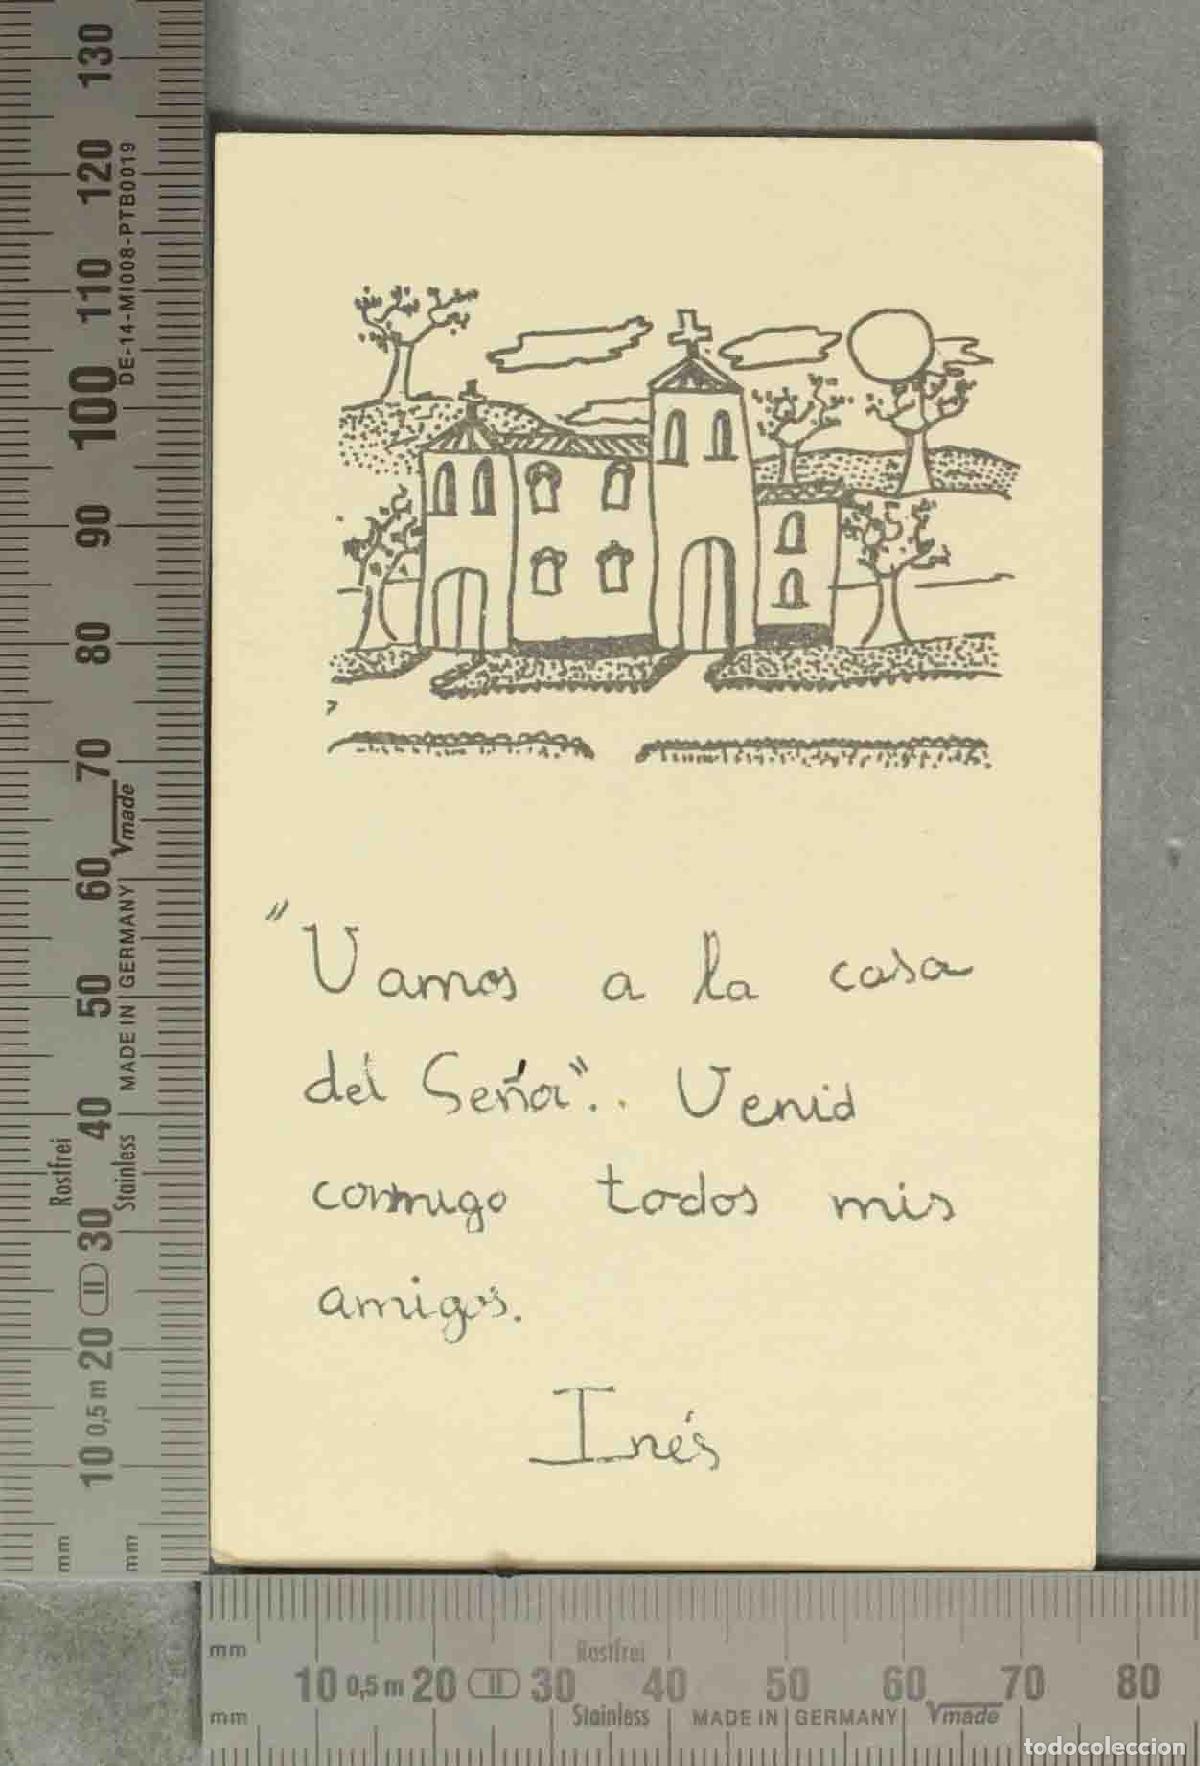 "Vamos a la casa
del Señor".. Venid
conmigo todos mis
amigos.
Inés
130
120
110
100
90
80
70
60
50
40
30
20
10
0,5 m
II
mm
mm
DE-14-MI008-PTB0019
Vmade
MADE IN GERMANY
Rostfrei
Stainless
mm
Rostfrei
10 0,5 m 20 II 30 40 50 60 70 80
mm
Stainless MADE IN GERMANY Vmade
todocoleccion